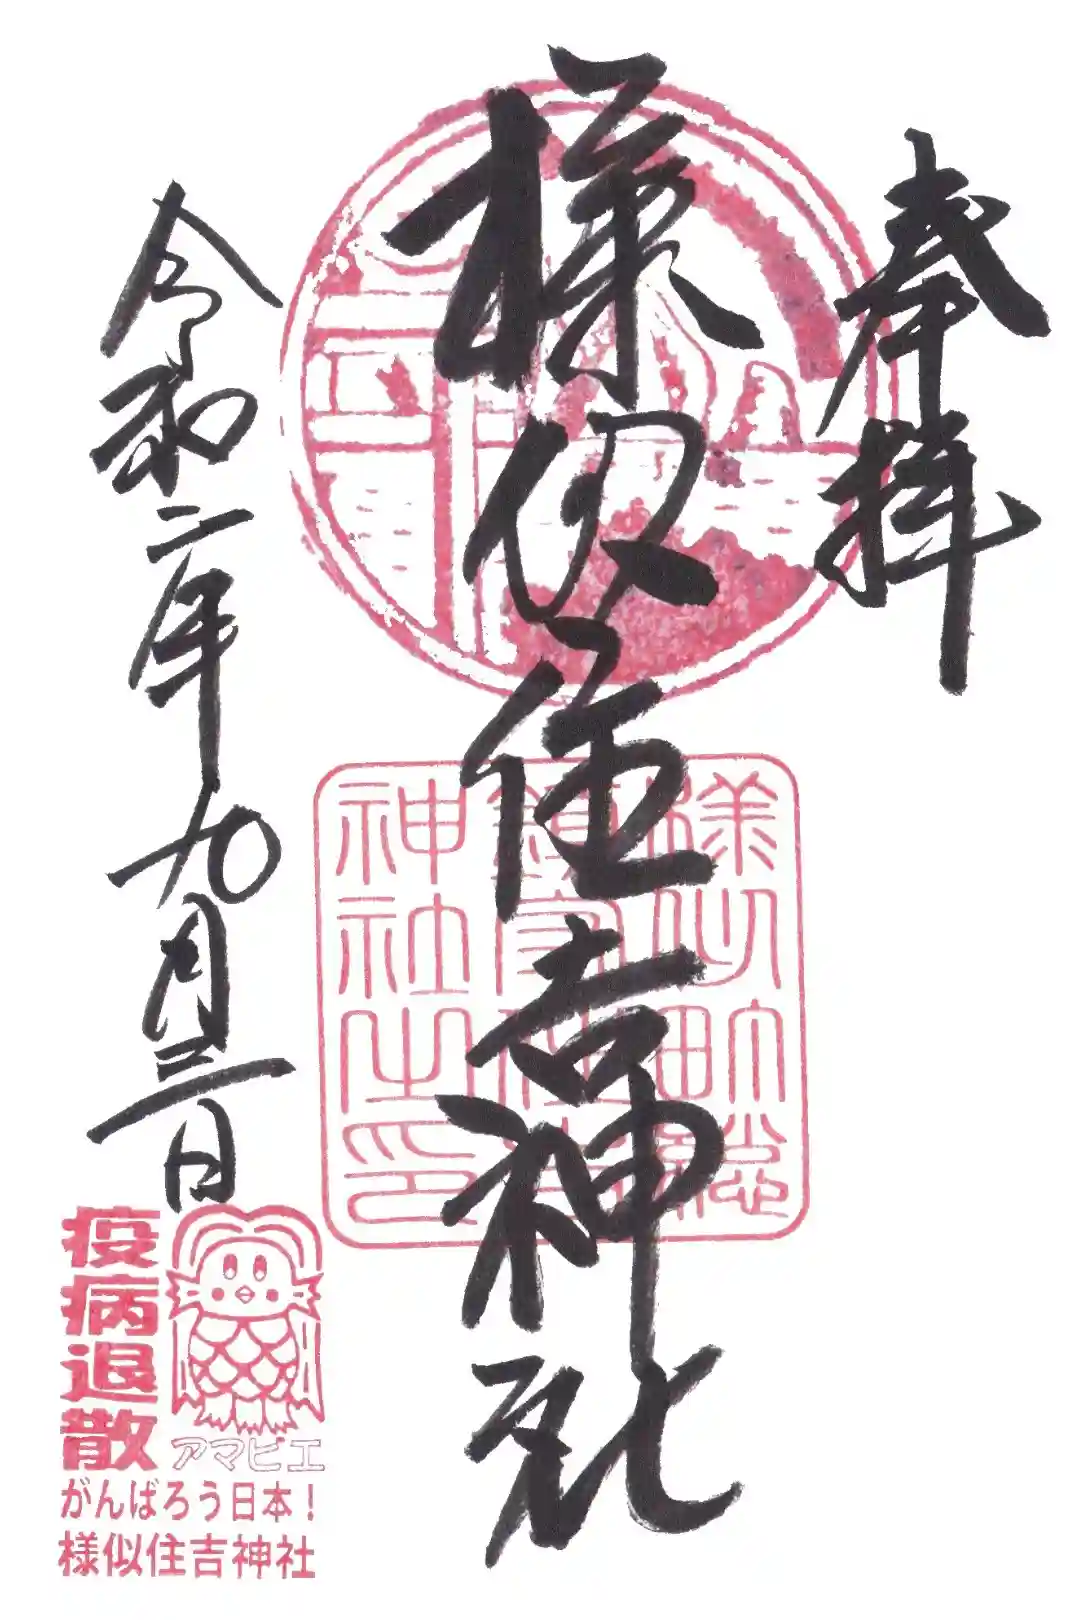 奉拝
様似住吉神社
様似町総
鎮守住吉
神社之印
令和二年九月三日
疫病退散
アマビエ
がんばろう日本!
様似住吉神社